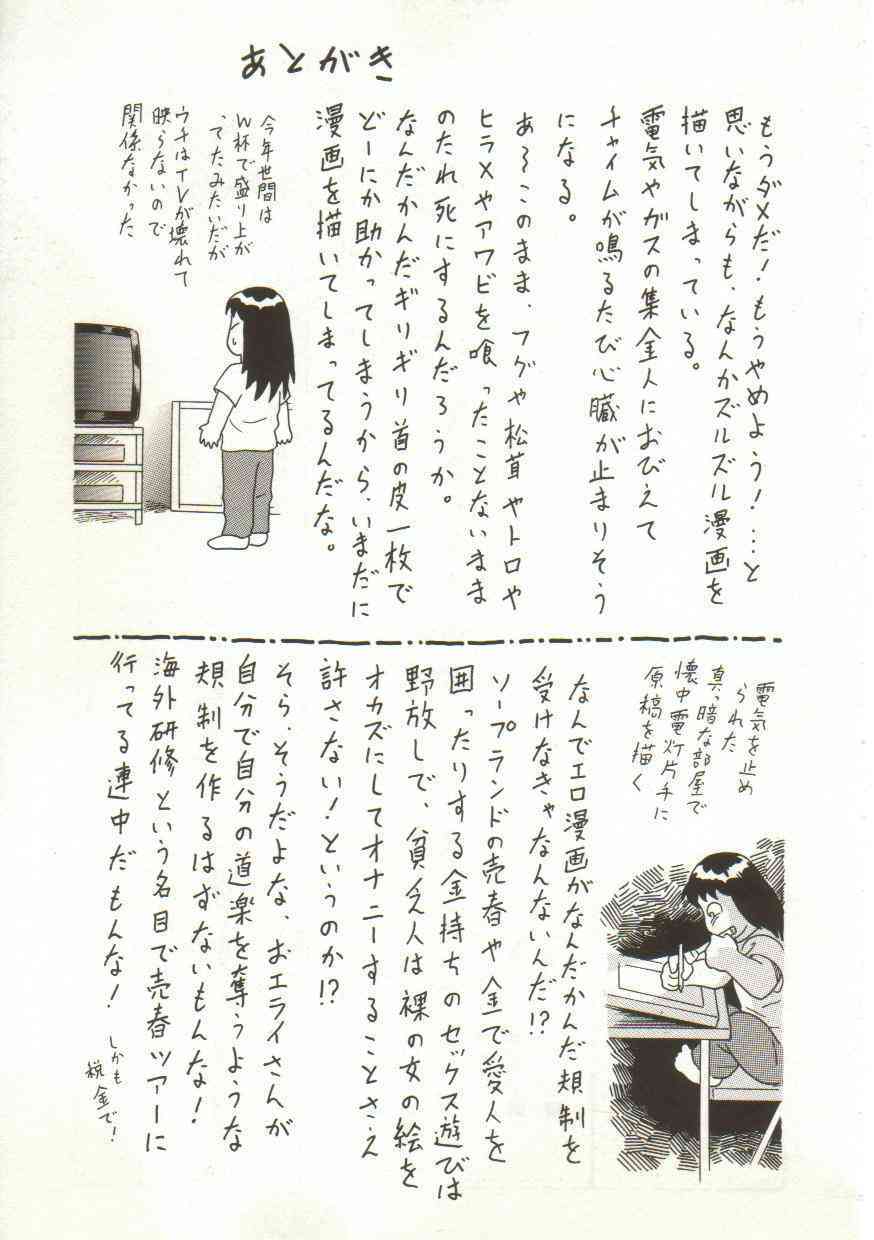 あとがき
もうダメだ！もうやめよう！…と
思いながらも、なんかズルズル漫画を
描いてしまっている。
電気やガスの集金人におびえて
チャイムが鳴るたび心臓が止まりそう
になる。
あ〜このまま、フグや松茸やトロや
ヒラメやアワビを喰ったことないまま
のたれ死にするんだろうか。
なんだかんだギリギリ首の皮一枚で
どーにか助かってしまうから、いまだに
漫画を描いてしまってるんだな。
今年世間は
W杯で盛り上が
ってたみたいだが
ウチはTVが壊れて
映らないので
関係なかった
電気を止め
られた
真っ暗な部屋で
懐中電灯片手に
原稿を描く
なんでエロ漫画がなんだかんだ規制を
受けなきゃなんないんだ!?
ソープランドの売春や金で愛人を
囲ったりする金持ちのセックス遊びは
野放しで、貧乏人は裸の女の絵を
オカズにしてオナニーすることさえ
許さない！というのか!?
そら、そうだよな、おエライさんが
自分で自分の道楽を奪うような
規制を作るはずないもんな！
海外研修という名目で売春ツアーに
行ってる連中だもんな！
しかも
税金で！